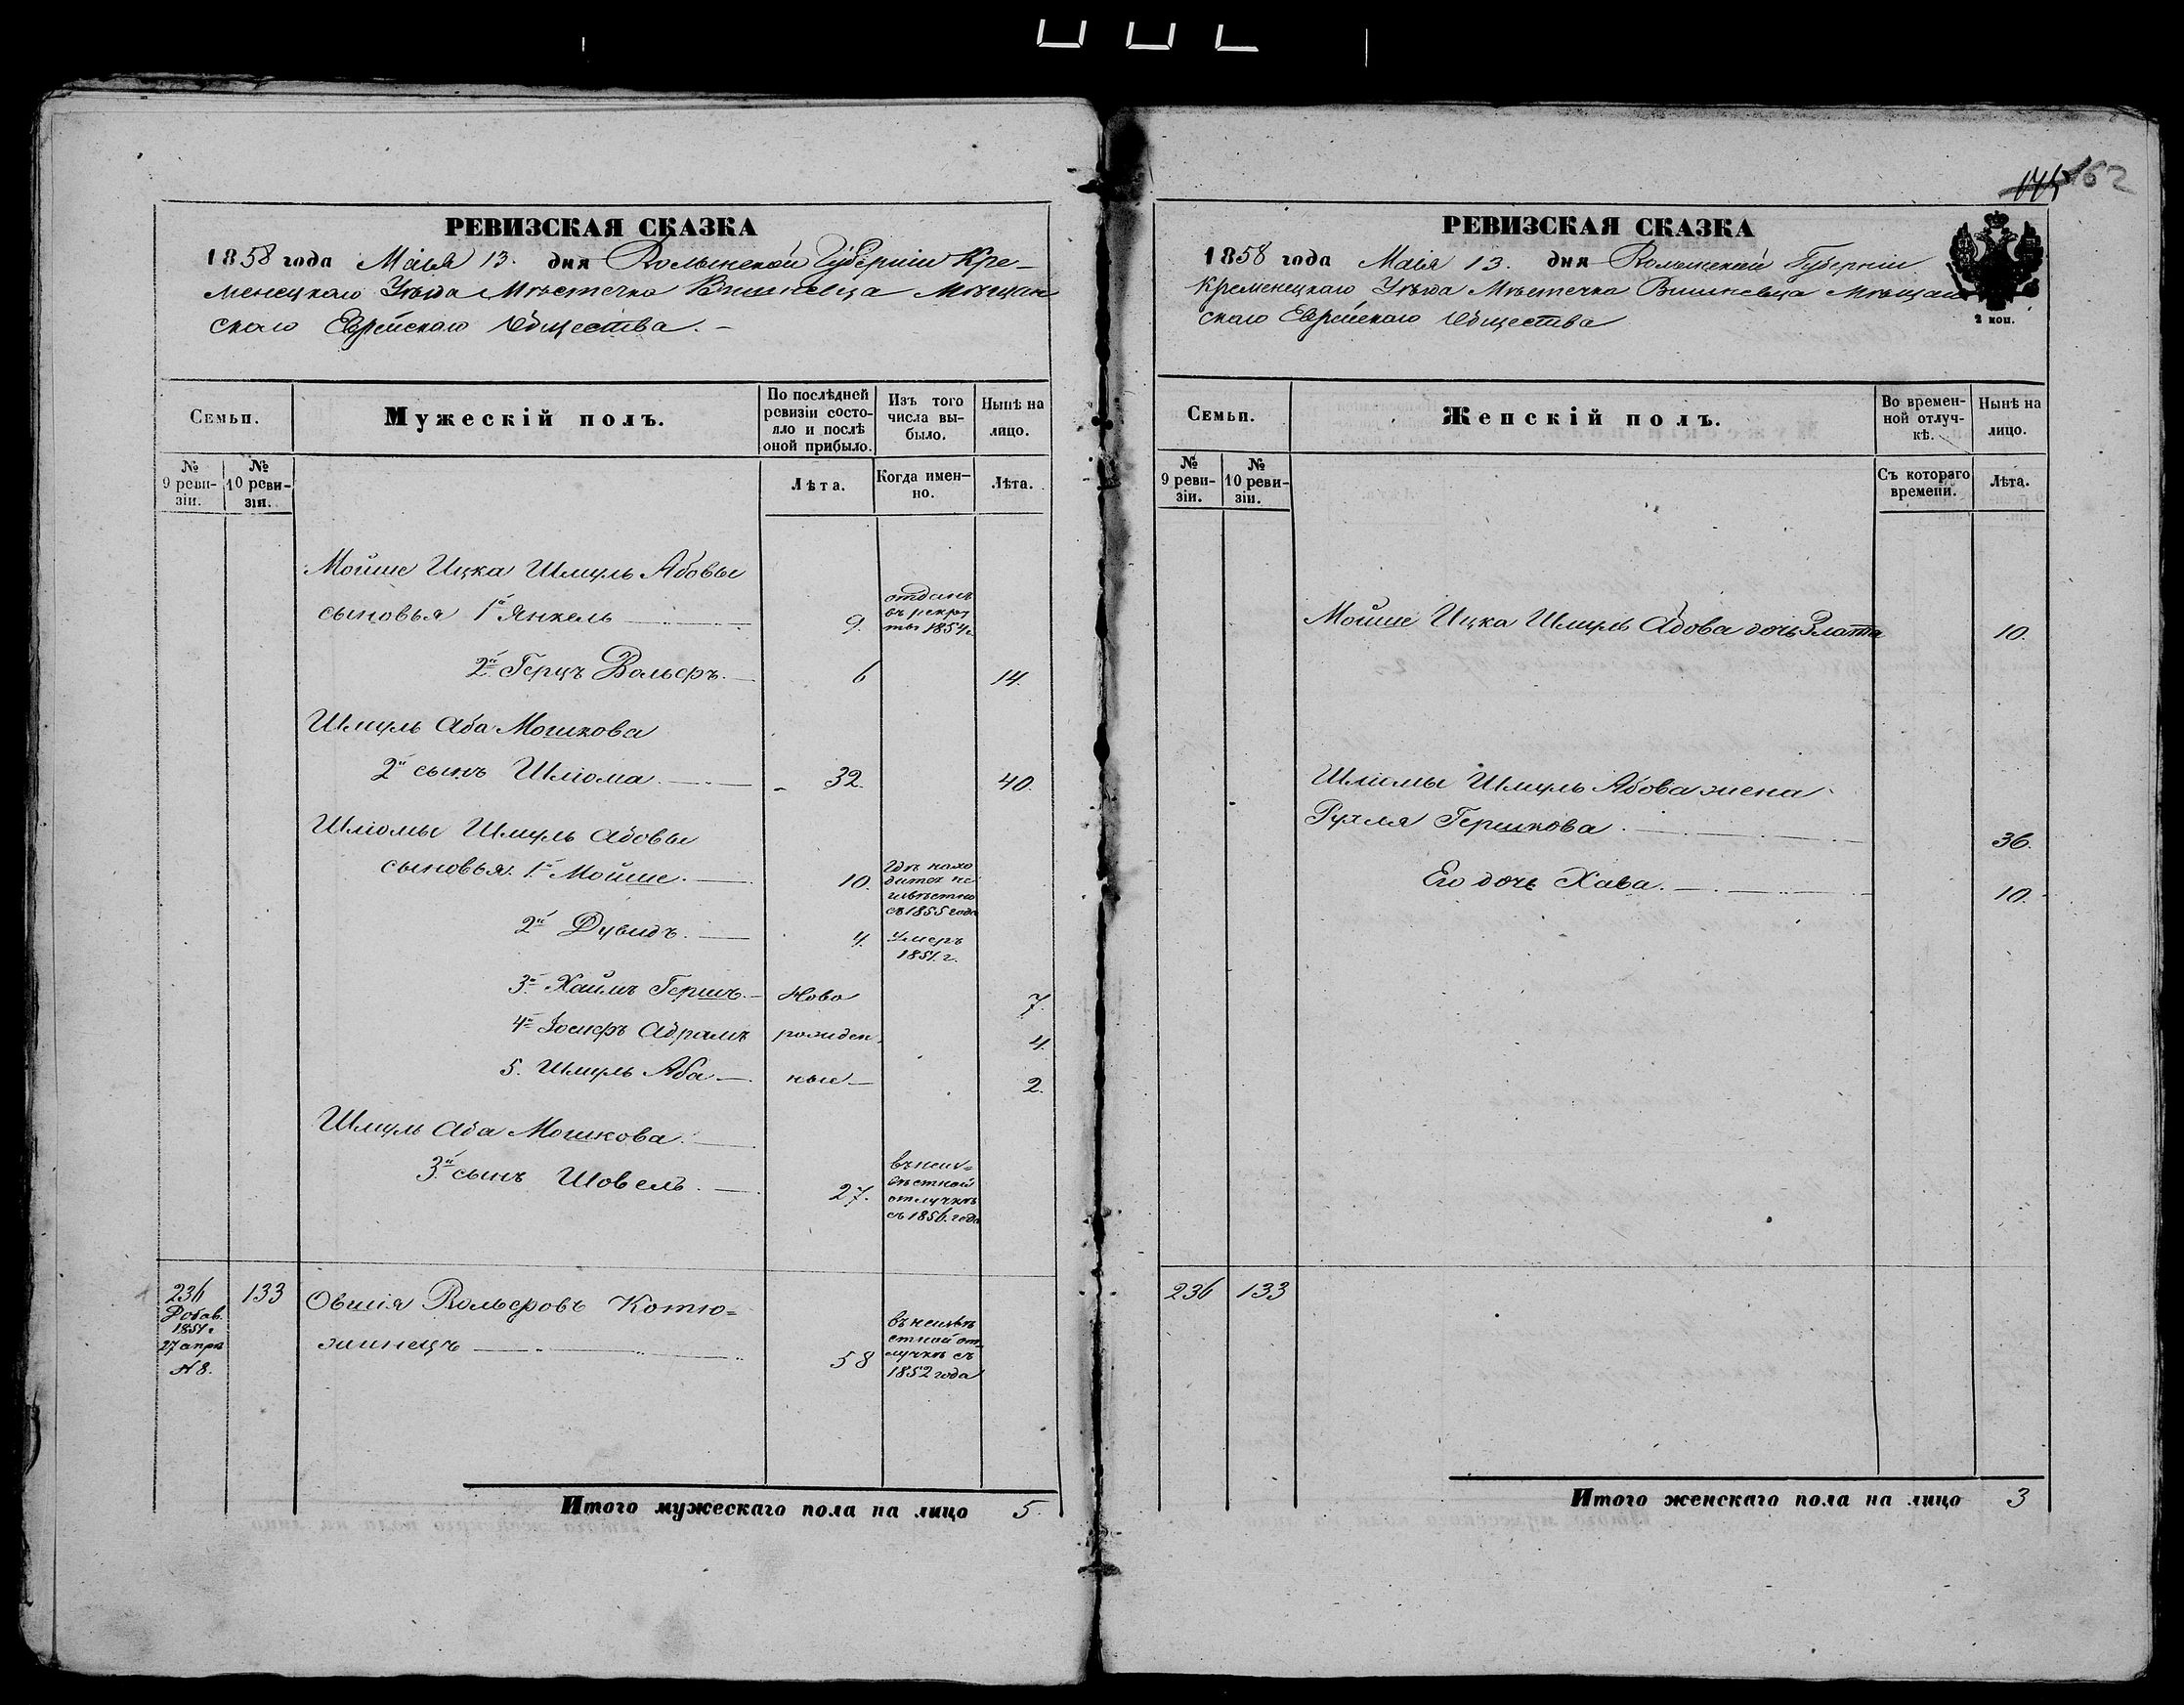 РЕВИЗСКАЯ СКАЗКА
1858 года Маія 13. дня Волынской Губерніи Кре-
менецкаго Уѣзда Мѣстечка Вишневца Мѣщан
скаго Еврейскаго Общества. -
Семьи.
Мужескій полъ.
По послѣдней ревизіи состо-
яло и послѣ оной прибыло.
Изъ того числа вы-
было.
Нынѣ на лицо.
№ 9 реви-
зіи.
№ 10 реви-
зіи.
Лѣта.
Когда имен-
но.
Лѣта.
Мойше Ицка Шмуль Абовы
сыновья 1й Янкель 9. отданъ
въ рекру
ты 1854г.
2й Герцъ Вольфъ. 6 14.
Шмуль Аба Мошкова
2й сынъ Шліома 32. 40.
Шліомы Шмуль Абовы
сыновья. 1й Мойше. 10. Гдѣ нахо
дится не
извѣстно
съ 1855 года
2й Дувидъ. 4. Умеръ
1851. г.
3й Хаимъ Гершъ. Ново 7.
4й Іосифъ Абрамъ рожден. 4.
5. Шмуль Аба ные 2.
Шмуль Аба Мошкова.
3й сынъ Шовель. 27. въ неиз=
вѣстной
отлучкѣ
съ 1856. года
236 133 Овшія Вольфовъ Котю=
Добав.
1851 г
27 апрѣ
N 8.
жинецъ 58 въ неизвѣ
стной от
лучкѣ съ
1852 года
Итого мужескаго пола на лицо 5.
162
РЕВИЗСКАЯ СКАЗКА
1858 года Маія 13. дня Волынской Губерніи
Кременецкаго Уѣзда Мѣстечка Вишневца Мѣщан
скаго Еврейскаго Общества
2 коп.
Семьи.
Женскій полъ.
Во времен-
ной отлуч-
кѣ.
Нынѣ на лицо.
№ 9 реви-
зіи.
№ 10 реви-
зіи.
Съ котораго времени.
Лѣта.
Мойше Ицка Шмуль Абова дочь Злата 10.
Шліомы Шмуль Абова жена
Рухля Гершкова. 36.
Его дочь Хава. 10.
236 133
Итого женскаго пола на лицо 3